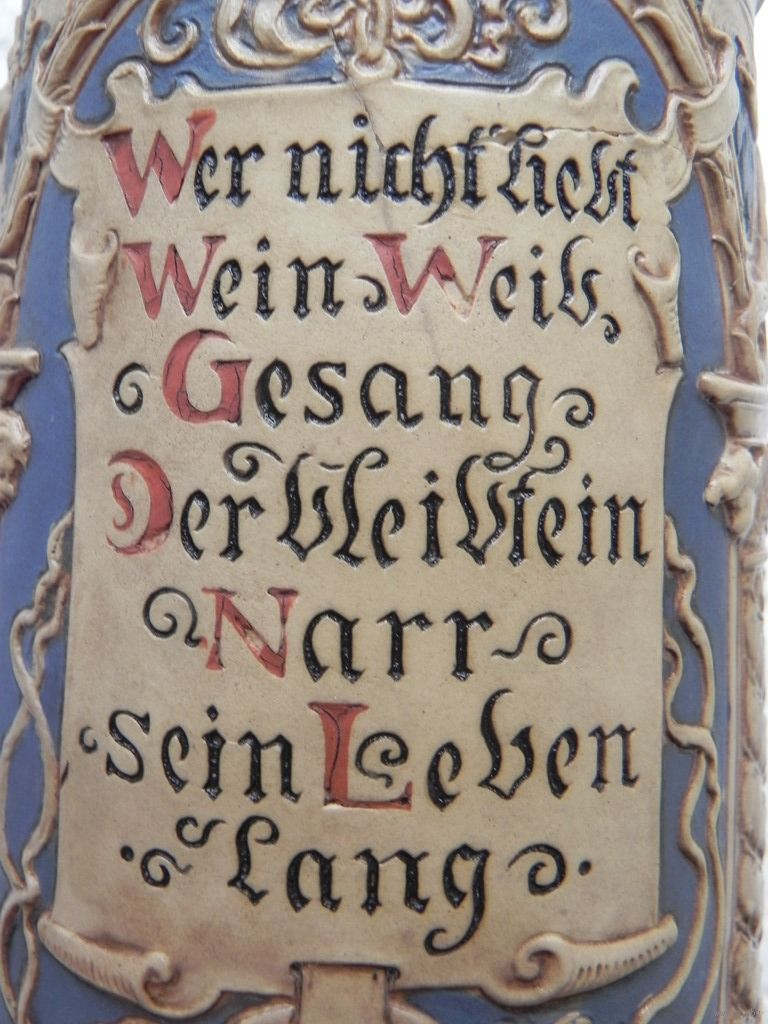 Wer nicht liebt
Wein, Weib,
Gesang
Der bleibt ein
Narr
sein Leben
Lang